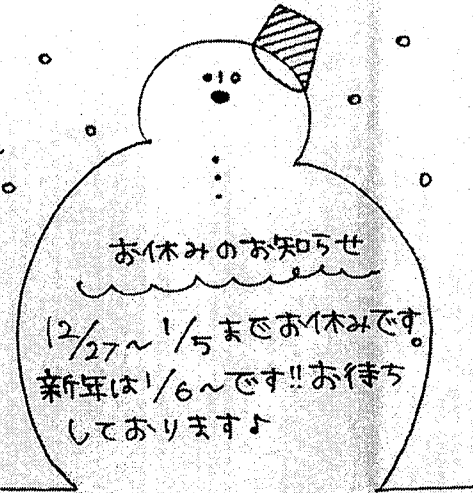 お休みのお知らせ
12/27～1/5までお休みです。
新年は1/6～です!!お待ち
しております♪